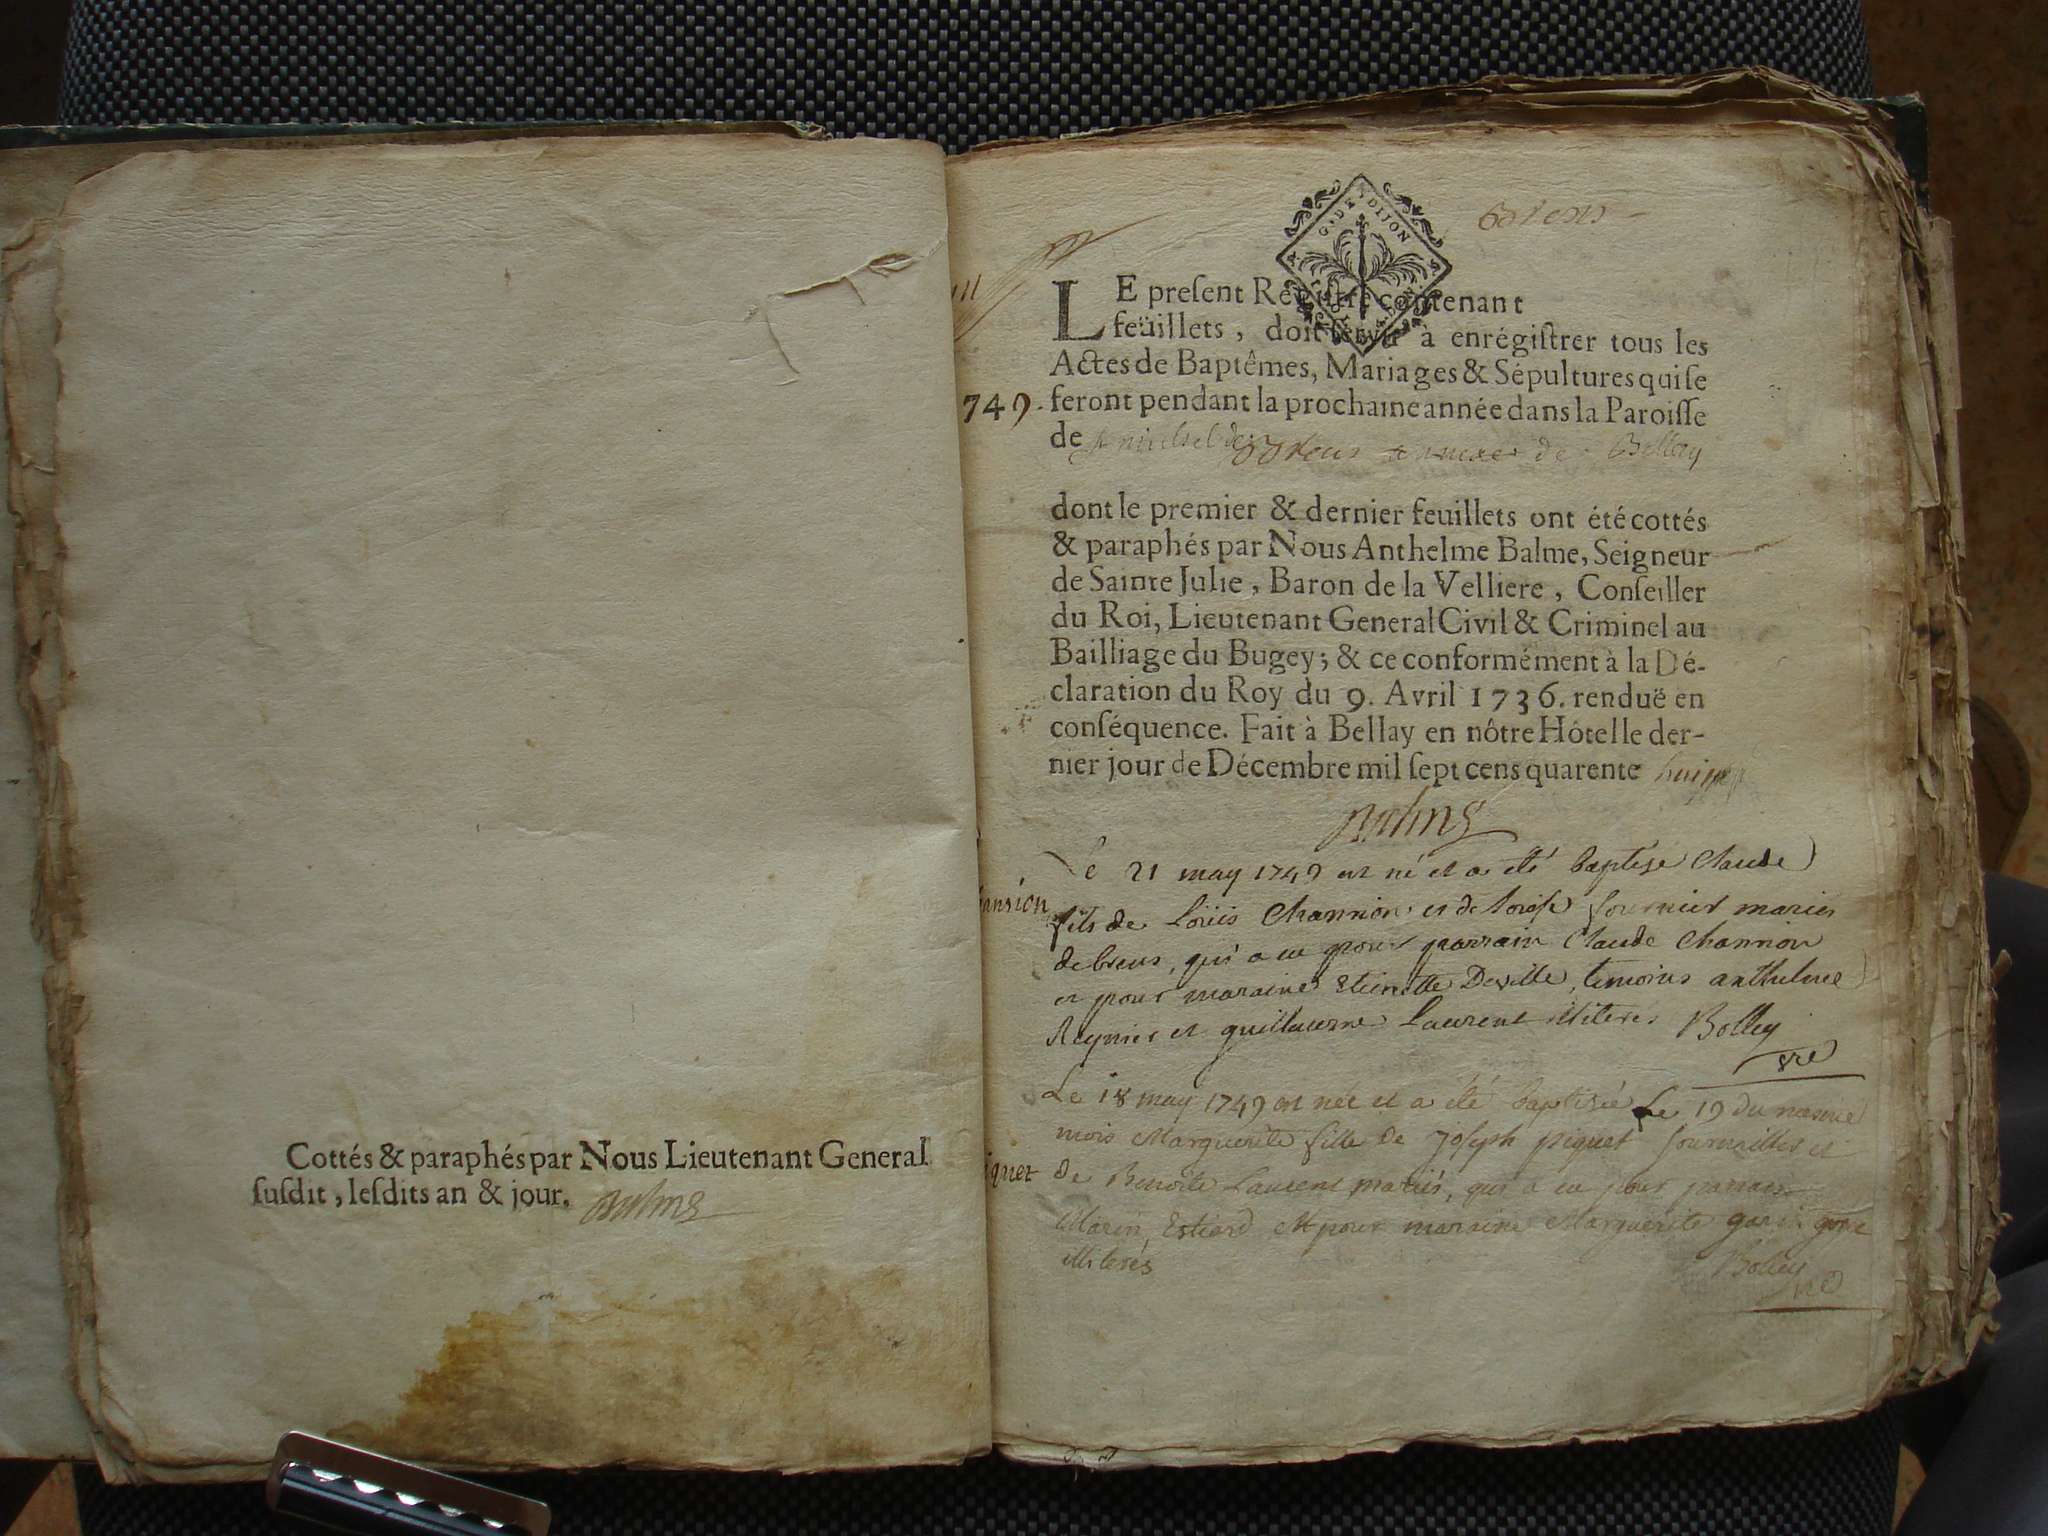 Cottés & paraphés par Nous Lieutenant General
susdit, lesdits an & jour.
G. DE DIJON
LE present Régistre contenant
feüillets, doit servir à enrégistrer tous les
Actes de Baptêmes, Mariages & Sépultures qui se
749. feront pendant la prochaine année dans la Paroisse
de annexe de Belley
dont le premier & dernier feuillets ont été cottés
& paraphés par Nous Anthelme Balme, Seigneur
de Sainte Julie, Baron de la Velliere, Conseiller
du Roi, Lieutenant General Civil & Criminel au
Bailliage du Bugey; & ce conformément à la Dé-
claration du Roy du 9. Avril 1736. renduë en
conséquence. Fait à Bellay en nôtre Hôtel le der-
nier jour de Décembre mil sept cens quarente huit
Balme
Le 21 may 1749 est né et a été baptisé Claude
fils de Loüis Channion et de fournier mariés
de breus, qui a eu pour parrain Claude Channion
et pour maraine Etienette Deville, temoins anthelme
Reynier et guillaume Laurent illiterés Bolley
vre
Le 18 may 1749 est née et a été baptisée Le 19 du mesme
mois Marguerite fille de Joseph piquet et
iquet de Benoite Laurent mariés, qui a eu pour parrain
Marin Estiard et pour maraine Marguerite
illiterés
Bolley
vre